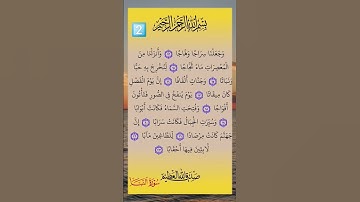 2
بسم الله الرحمن الرحيم
وَجَعَلْنَا سِرَاجًا وَهَّاجًا ۝ وَأَنزَلْنَا مِنَ
الْمُعْصِرَاتِ مَاءً ثَجَّاجًا ۝ لِنُخْرِجَ بِهِ حَبًّا
وَنَبَاتًا ۝ وَجَنَّاتٍ أَلْفَافًا ۝ إِنَّ يَوْمَ الْفَصْلِ
كَانَ مِيقَاتًا ۝ يَوْمَ يُنفَخُ فِي الصُّورِ فَتَأْتُونَ
أَفْوَاجًا ۝ وَفُتِحَتِ السَّمَاءُ فَكَانَتْ أَبْوَابًا
۝ وَسُيِّرَتِ الْجِبَالُ فَكَانَتْ سَرَابًا ۝ إِنَّ
جَهَنَّمَ كَانَتْ مِرْصَادًا ۝ لِلطَّاغِينَ مَآبًا ۝
لَابِثِينَ فِيهَا أَحْقَابًا ۝
صدق الله العظيم
سورة النبأ